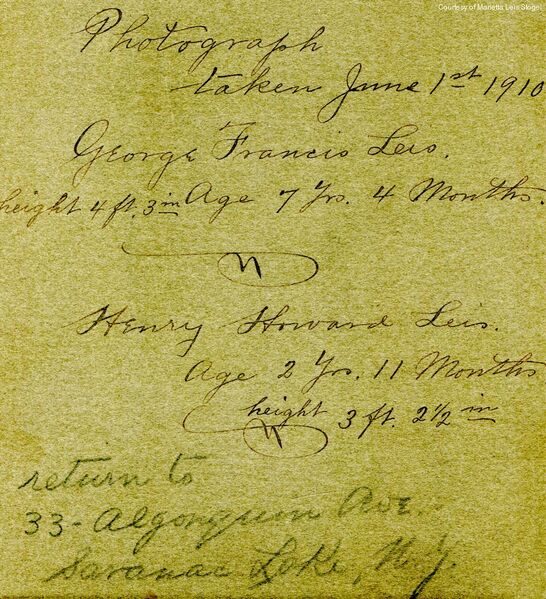 Courtesy of Marietta Leis Slogel
Photograph
taken June 1st 1910
George Francis Leis.
height 4 ft. 3 in Age 7 Yrs. 4 Months.
Henry Howard Leis.
Age 2 Yrs. 11 Months
height 3 ft. 2½ in
return to
33 - Algonquin Ave.
Saranac Lake, N.Y.